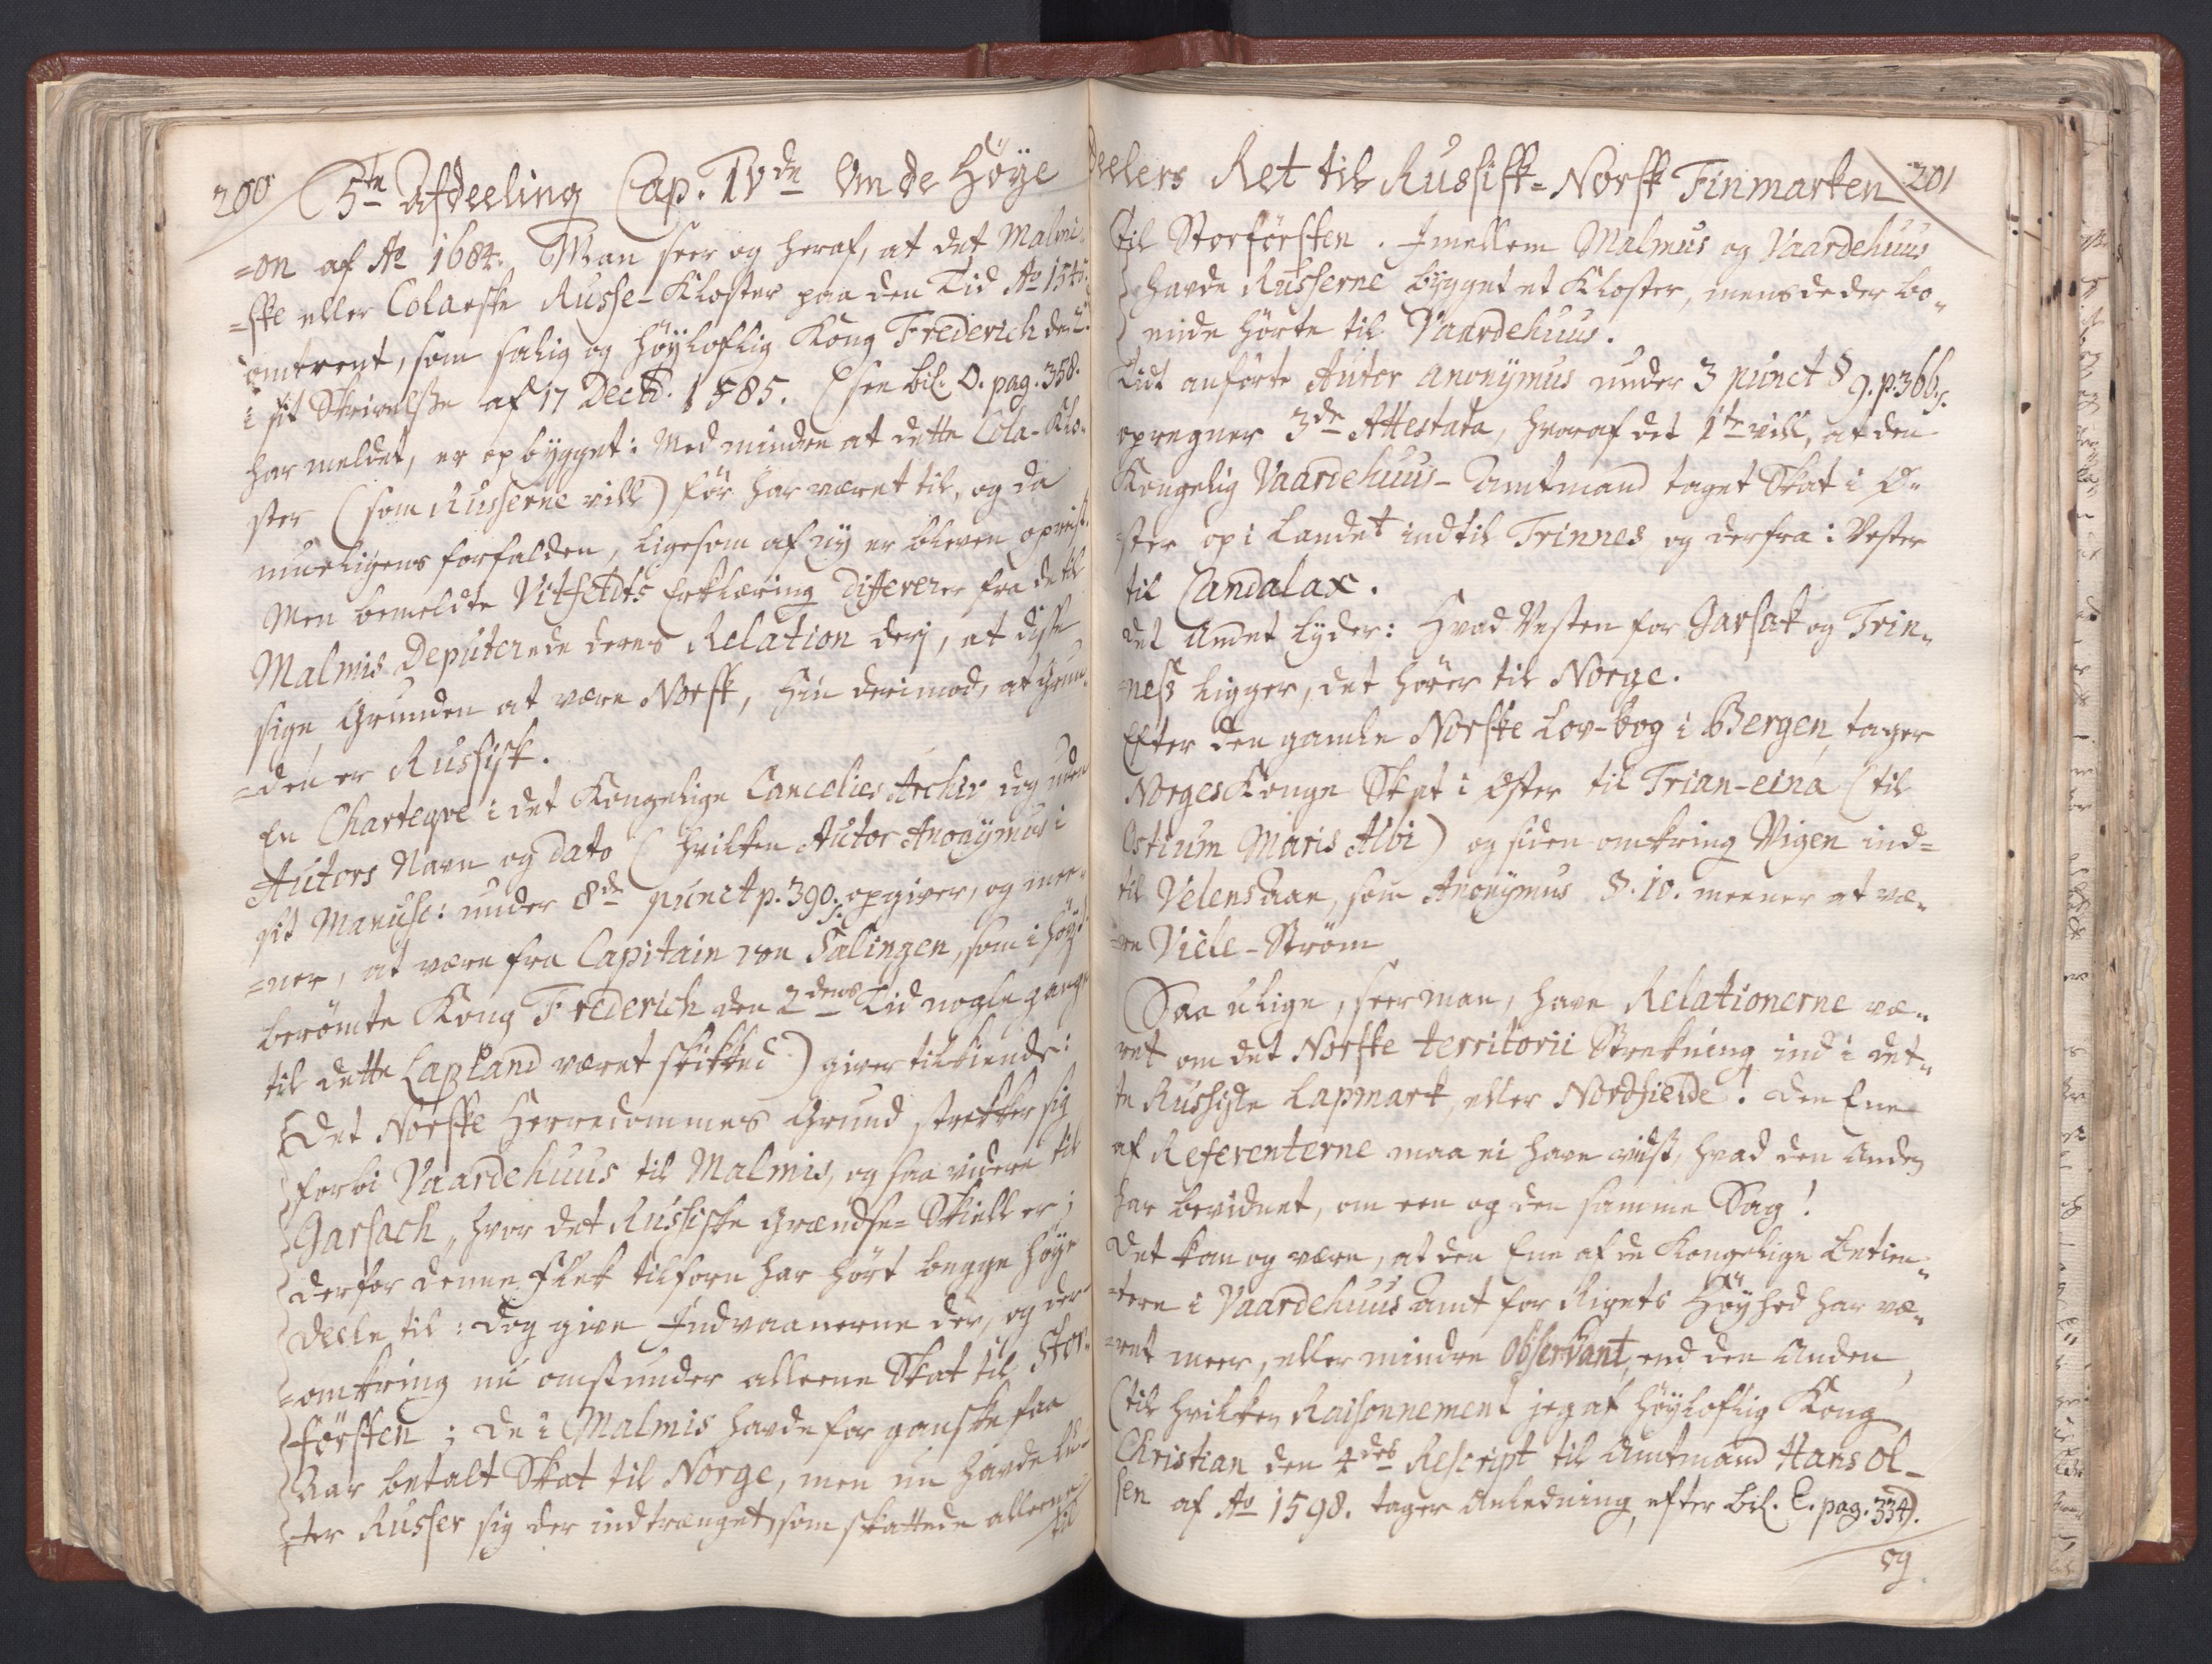 200
5te Afdeeling Cap. IVde Om de Höye
=on af Ao 1684. Man seer og heraf, at det Malmi-
=ske eller Colaeske Russe-Kloster paa den Tid Ao 1545
omtrent, som salig og höyloflig Kong Frederich den 2.
i sit Skrivelsse af 17 Decb. 1585. (see bil. O. pag. 358.
har meldet, er opbygget: Med mindre at dette Cola-Klo-
ster (som Russerne vill) för har været til, og da
mueligens forfalden, ligesom af ny er bleven opreist.
Men bemeldte Vitfeldts Erklæring differerer fra de til
Malmis Deputerede deres Relation derj, at disse
sige Grunden at være Norsk, hin derimod, at Grun-
=den er Russisk.
En Charteqve i det Kongelige Cancelies Archiv dog uden
Autors Navn og dato (hvilken Autor Anonymus i
sit Manusc: under 8de punct p. 390. opgiver, og mee-
=ner, at være fra Capitain von Salingen, som i höy-
berömte Kong Frederich den 2dens Tid nogle gange
til dette Lapland været skikked) giver tilkiende:
Det Norske Herredommes Grund strekker sig
forbi Vaardehuus til Malmis, og saa videre til
Garsach, hvor det Russiske Grændse-Skiell er;
derfor denne Flek tilforn har hört begge höye
deele til: dog give Indvaanerne der, og der-
=omkring nu omstunder alleene Skat til Stor-
försten; de i Malmis havde for ganske faa
Aar betalt Skat til Norge, men nu havde lu-
ter Russer sig der indtrænget, som skattede alleene
til
deelers Ret til Russisk-Norsk Finmarken
201
til Storförsten. Imellem Malmus og Vaardehuus
havde Russerne bygget et Kloster, mens de der bo-
ende hörte til Vaardehuus.
Tidt anförte Autor anonymus under 3 punct § 9. p. 366.
opregner 3de Attestata, hvoraf det 1te vill, at den
Kongelig Vaardehuus-Amtmand taget Skat i Ö-
ster op i Landet indtil Trinnes og derfra i Vester
til Candalax.
Det Andet lyder: Hvad Vesten for Garsak og Trin-
=ness ligger, det hörer til Norge.
Efter den gamle Norske Lov-bog i Bergen, tager
Norges Konge Skat i Öster til Trian-eina (til
Ostium Maris Albi) og siden omkring Vigen ind=
til Velens Aae, som Anonymus §. 10. meener at væ-
=re Viele-Ström
Saa ulige, seer man, have Relationerne væ-
ret om det Norske territorii Strekning ind i det-
te Russiske Lapmark, eller Nordfielde! den Ene
af Referenterne maa ei have vidst, hvad den Anden
har bevidnet, om een og den samme Sag!
Det kan og være, at den Ene af de Kongelige betien-
=tere i Vaardehuus Amt for Rigets Höyhed har væ-
=ret meer, eller mindre Observant, end den Anden
(til hvilken Raisonnement jeg af höyloflig Kong
Christian den 4des Rescript til Amtmand Hans Ol-
sen af Ao 1598. tager Anledning, efter bil. E. pag. 334).
og